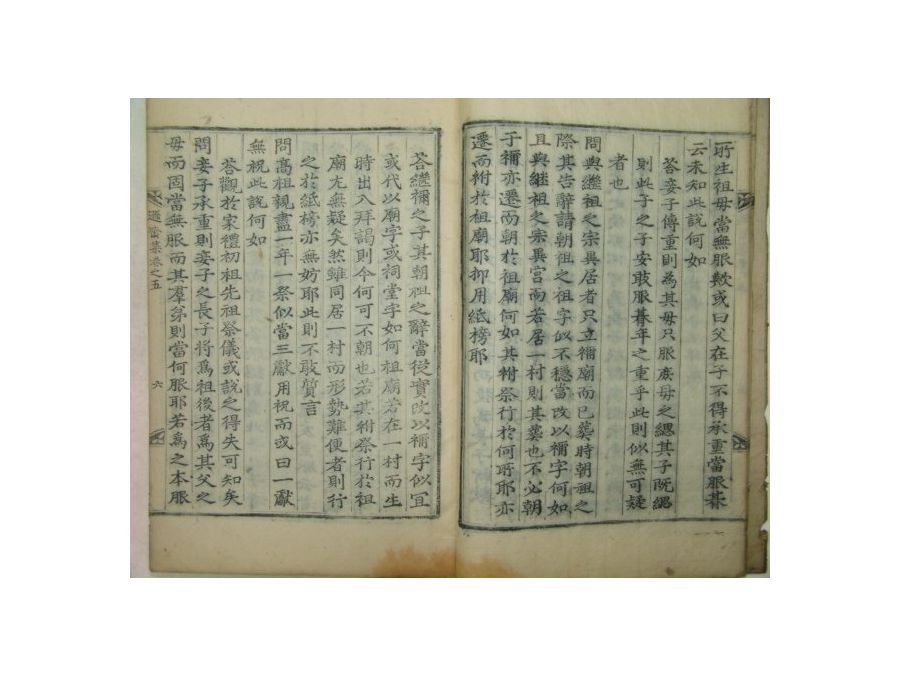 所生祖母當無服歟或曰父在子不得承重當服朞
云未知此說何如
答妾子傳重則爲其母只服庶母之緦其子旣緦
則此子之子安敢服朞年之重乎此則似無可疑
者也
問與繼祖之宗異居者只立禰廟而已葬時朝祖之
際其告辭請朝祖之祖字似不穩當改以禰字何如
且與繼祖之宗異宮而若居一村則其葬也不必朝
于禰亦遷而朝於祖廟何如其祔祭行於何所耶亦
遷而祔於祖廟耶抑用紙榜耶
答繼禰之子其朝祖之辭當從實改以禰字似宜
或代以廟字或祠堂字如何祖廟若在一村而生
時出入拜謁則今何可不朝也若其祔祭行於祖
廟尤無疑矣然雖同居一村而形勢難便者則行
之於紙榜亦無妨耶此則不敢質言
問高祖親盡一年一祭似當三獻用祝而或曰一獻
無祝此說何如
答觀於家禮初祖先祖祭儀或說之得失可知矣
問妾子承重則妾子之長子將爲祖後者爲其父之
母而固當無服而其羣弟則當何服耶若爲之本服
集卷之五
六